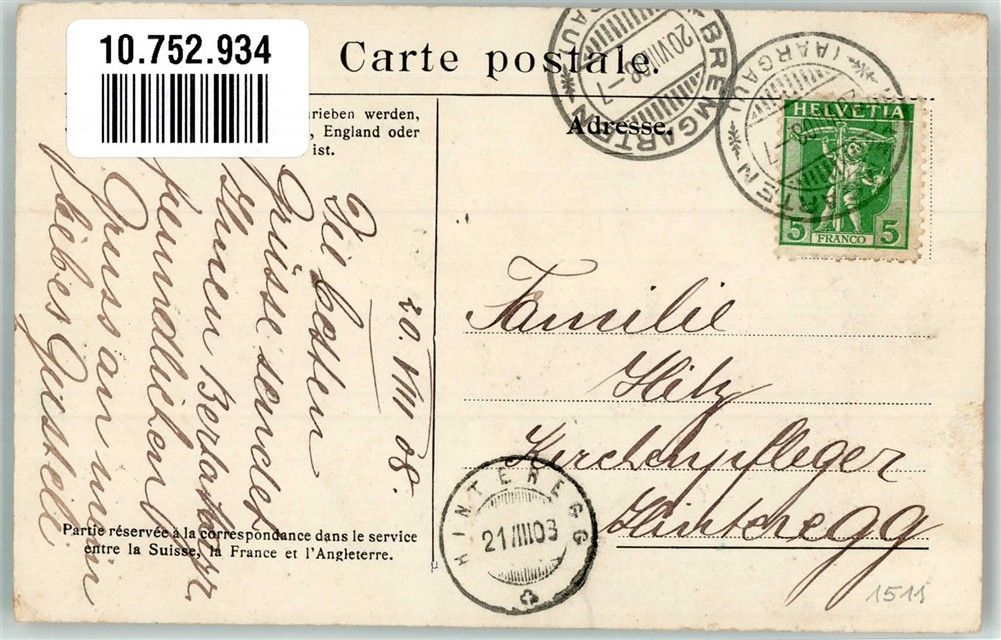 10.752.934
Carte postale.
rieben werden,
, England oder
ist.
Adresse.
BREMGARTEN
20 VIII 08 – 7
(AARGAU)
BREMGARTEN
(AARGAU)
HELVETIA
5 FRANCO 5
20. VIII 08.
Die besten
Grüsse sendet
Ihnen
freundlichen
Gruss an mein
liebes Gusteli
Familie
Hitz
Kirchenpfleger
Hinteregg
HINTEREGG
21 VIII 08
Partie réservée à la correspondance dans le service
entre la Suisse, la France et l'Angleterre.
1511